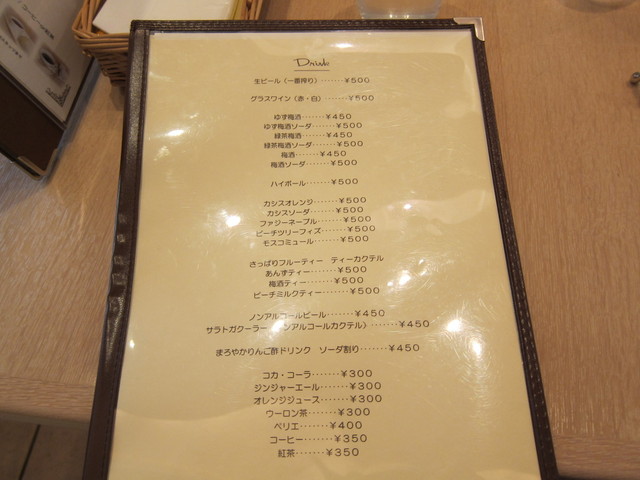 Drink
生ビール（一番搾り）‥‥‥¥500
グラスワイン（赤・白）‥‥‥¥500
ゆず梅酒‥‥‥¥450
ゆず梅酒ソーダ‥‥‥¥500
緑茶梅酒‥‥‥¥450
緑茶梅酒ソーダ‥‥‥¥500
梅酒‥‥‥¥450
梅酒ソーダ‥‥‥¥500
ハイボール‥‥‥¥500
カシスオレンジ‥‥‥¥500
カシスソーダ‥‥‥¥500
ファジーネーブル‥‥‥¥500
ピーチツリーフィズ‥‥‥¥500
モスコミュール‥‥‥¥500
さっぱりフルーティー ティーカクテル
あんずティー‥‥‥¥500
梅酒ティー‥‥‥¥500
ピーチミルクティー‥‥‥¥500
ノンアルコールビール‥‥‥¥450
サラトガクーラー ンアルコールカクテル〉‥‥‥¥450
まろやかりんご酢ドリンク ソーダ割り‥‥‥¥450
コカ・コーラ‥‥‥¥300
ジンジャーエール‥‥‥¥300
オレンジジュース‥‥‥¥300
ウーロン茶‥‥‥¥300
ペリエ‥‥‥¥400
コーヒー‥‥‥¥350
紅茶‥‥‥¥350